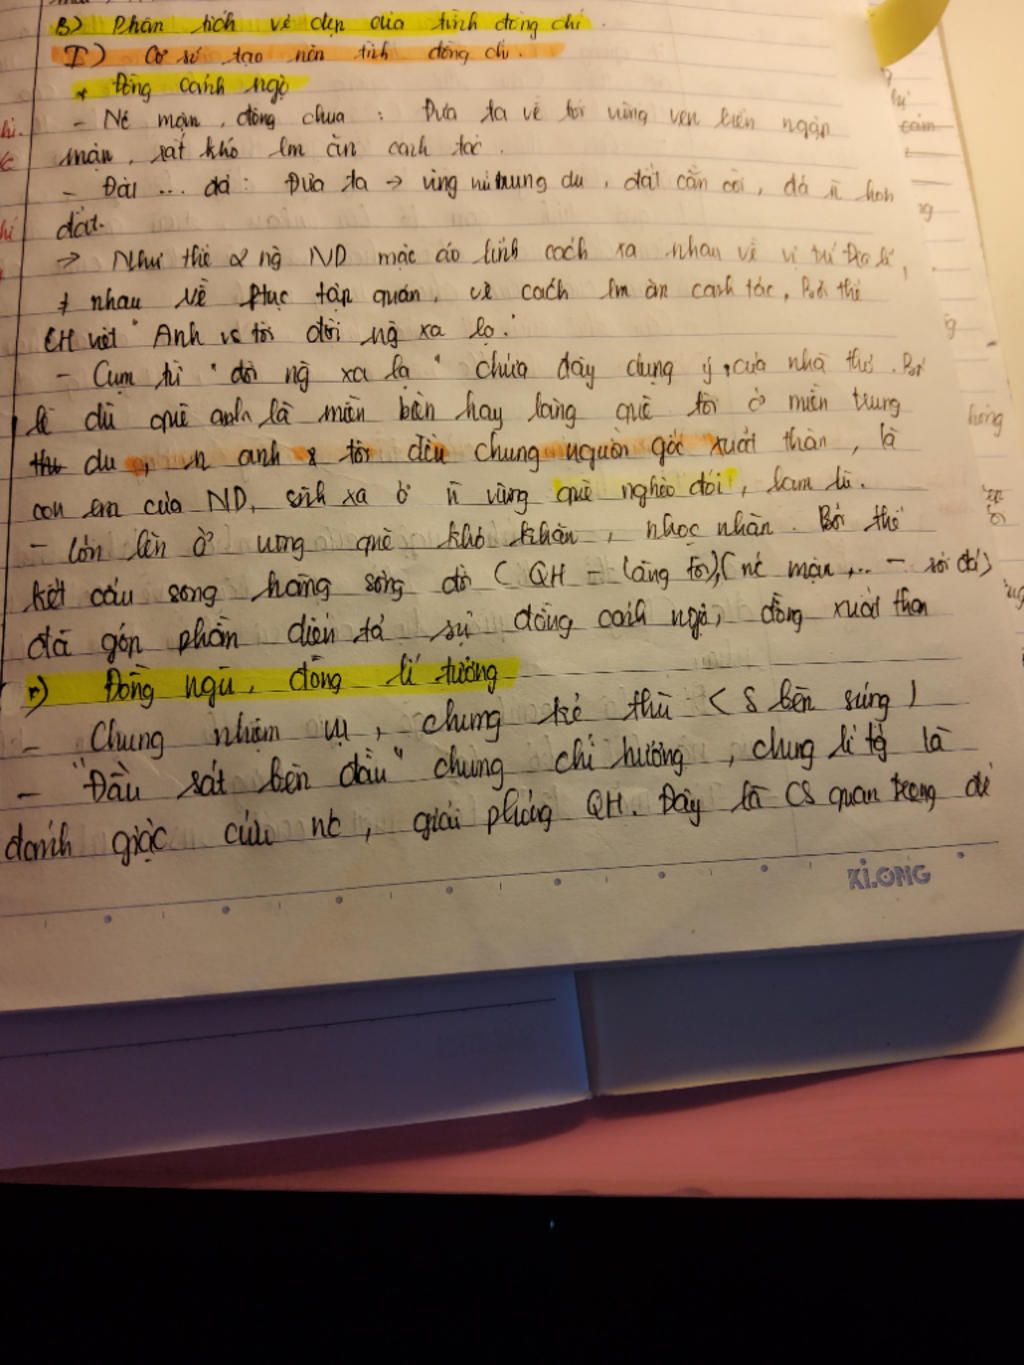 B) Phân tích vẻ đẹp của tình đồng chí
I) Cơ sở tạo nên tình đồng chí.
* Đồng cảnh ngộ
- Nc mặn, đồng chua: Đưa ta về tới vùng ven biển ngập
mặn, rất khó lm ăn canh tác.
- Đất ... đá: Đưa ta → vùng núi trung du, đất cằn cỗi, đá n hơn
đất.
→ Như thế 2 ng ND mặc áo lính cách xa nhau về vị trí địa lí,
≠ nhau về phục tập quán, về cách lm ăn canh tác, Bởi thế
CH viết "Anh vs tôi đôi ng xa lạ."
- Cụm từ "đôi ng xa lạ" chứa đầy dụng ý của nhà thơ. Bởi
lẽ dù quê anh là miền biển hay làng quê tôi ở miền trung
du, n anh & tôi đều chung nguồn gốc xuất thân, là
con em của ND, sinh xa ở n vùng quê nghèo đói, lam lũ.
- Lớn lên ở quê khó khăn, nhọc nhằn. Bởi thế
kết cấu song hàng sóng đôi (QH - làng tôi), (nc mặn,... - sỏi đá)
đã góp phần diễn tả sự đồng cảnh ngộ, đồng xuất thân
*) Đồng ngũ, đồng lí tưởng
- Chung nhiệm vụ, chung kẻ thù (S bên súng)
- "Đầu sát bên đầu" chung chí hướng, chung lí tg là
đánh giặc cứu nc, giải phóng QH. Đây là CS quan trọng để
KLONG